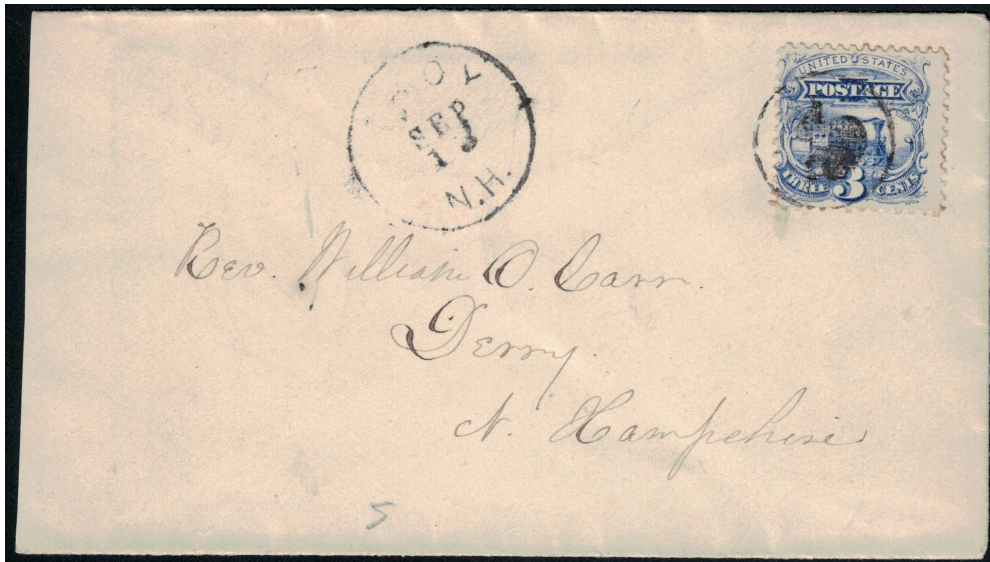 SEP
N.H.
UNITED STATES
POSTAGE
THREE 3 CENTS
Rev. William O. Carr.
Derry.
N. Hampshire
5